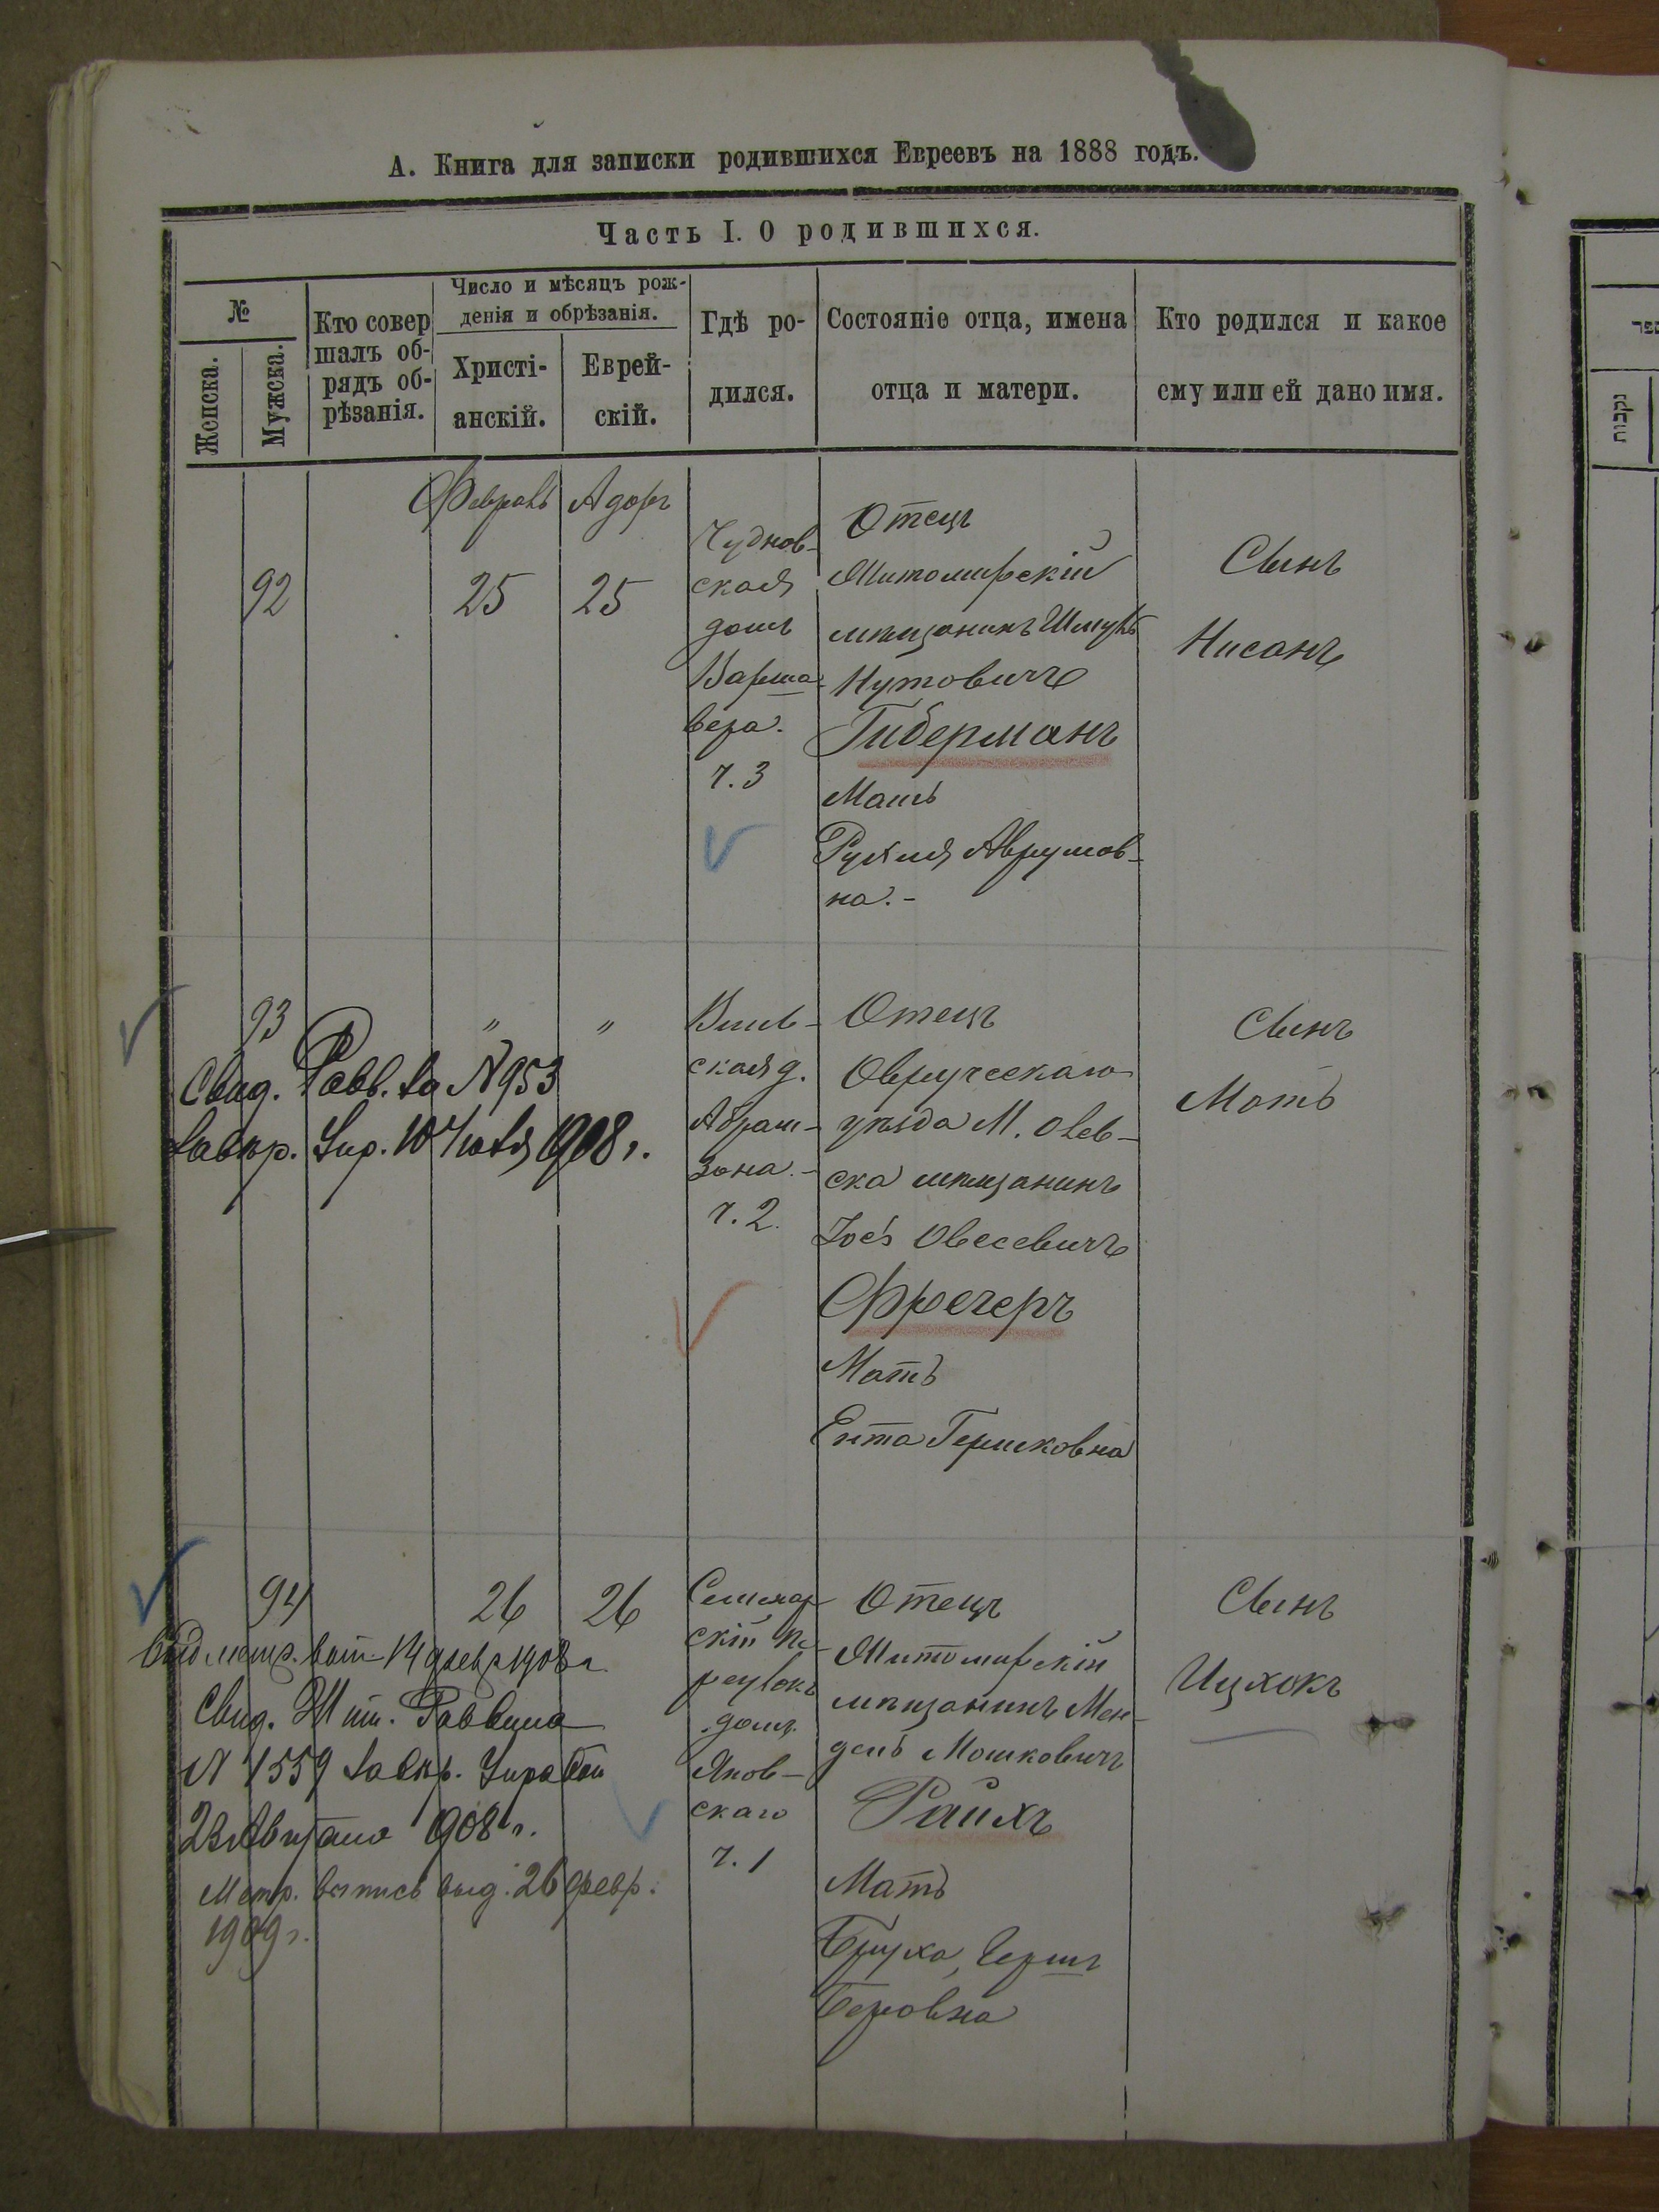 А. Книга для записки родившихся Евреевъ на 1888 годъ.
Часть I. О родившихся.
№
Женска.
Мужска.
Кто совер
шалъ об-
рядъ об-
рѣзанія.
Число и мѣсяцъ рож-
денія и обрѣзанія.
Христі-
анскій.
Еврей-
скій.
Гдѣ ро-
дился.
Состояніе отца, имена
отца и матери.
Кто родился и какое
ему или ей дано имя.
Февраль
Адаръ
92
25
25
Чуднов-
ская
домъ
Варша-
вера.
ч. 3
Отецъ
Житомирскій
мѣщанинъ Шмуль
Нутовичъ
Гиберманъ
Мать
Рухля Аврумов-
на.-
Сынъ
Нисанъ
93
"
"
Свид. Равв. за N 953
завѣр. Упр. 10 Іюля 1908 г.
Виль-
ская д.
Абрам-
зона.-
ч. 2.
Отецъ
Овручскаго
уѣзда М. Олев-
ска мѣщанинъ
Іось Овсевичъ
Фречеръ
Мать
Ента Гершковна
Сынъ
Мать
94
26
26
14 февр 1908 г.
Свид. Жит. Раввина
N 1559 завѣр. Управой
23 Августа 1908 г.
Метр. выпись выд. 26 февр.
1909 г.
Семинар-
скій пе-
реулокъ
домъ
Янов-
скаго
ч. 1
Отецъ
Житомирскій
мѣщанинъ Мен-
дель Мошковичъ
Райхъ
Мать
Бруха, Герш
Беровна
Сынъ
Ицхокъ
נקבות